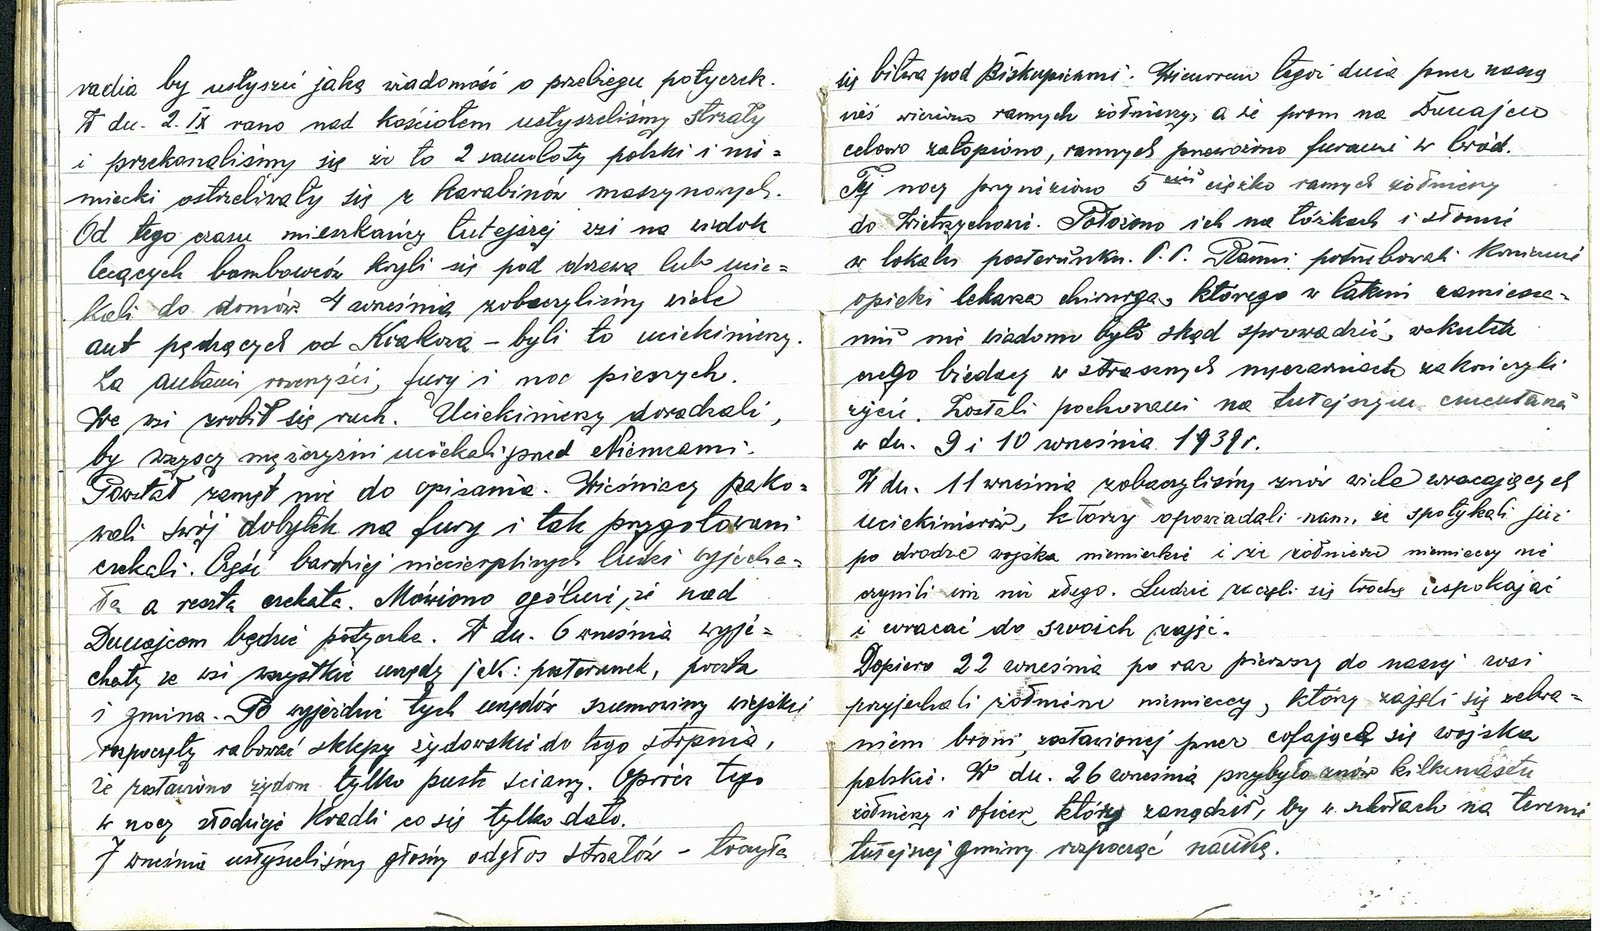 radia by usłyszeć jaką wiadomość o przebiegu potyczek.
W dn. 2.IX rano nad kościołem usłyszeliśmy strzały
i przekonaliśmy się że to 2 samoloty polski i nie=
miecki ostrzeliwały się z karabinów maszynowych.
Od tego czasu mieszkańcy tutejszej wsi na widok
lecących bombowców kryli się pod drzewa lub ucie=
kali do domów. 4 września zobaczyliśmy wiele
aut pędzących od Krakowa – byli to uciekinierzy.
Za autami rowerzyści, fury i moc pieszych.
We wsi zrobił się ruch. Uciekinierzy doradzali,
by wszyscy mężczyźni uciekali przed Niemcami.
Powstał zamęt nie do opisania. Wieśniacy pako=
wali swój dobytek na fury i tak przygotowani
czekali. Część bardziej niecierpliwych ludzi wyjecha=
ła a reszta czekała. Mówiono ogólnie, że nad
Dunajcem będzie potyczka. W dn. 6 września wyje=
chały ze wsi wszystkie urzędy jak: posterunek, poczta
i gmina. Po wyjeździe tych urzędów szumowiny wiejskie
rozpoczęły rabować sklepy żydowskie do tego stopnia,
że zostawiono żydom tylko puste ściany. Oprócz tego
w nocy złodzieje kradli co się tylko dało.
7 września usłyszeliśmy głośny odgłos strzałów – toczyła
się bitwa pod Biskupicami. Wieczorem tegoż dnia przez naszą
wieś wieziono rannych żołnierzy, a że prom na Dunajcu
celowo zatopiono, rannych przewożono furami w bród.
Tej nocy przywieziono 5 ciężko rannych żołnierzy
do Wietrzychowic. Położono ich na łóżkach i słomie
w lokalu posterunku. P.P. Ranni potrzebowali koniecznie
opieki lekarza chirurga, którego w takim zamiesza=
niu nie wiadomo było skąd sprowadzić, wskutek
czego biedacy w strasznych męczarniach zakończyli
życie. Zostali pochowani na tutejszym cmentarzu
w dn. 9 i 10 września 1939r.
W dn. 11 września zobaczyliśmy znów wiele wracających
uciekinierów, którzy opowiadali nam, że spotykali już
po drodze wojska niemieckie i że żołnierze niemieccy nie
czynili im nic złego. Ludzie zaczęli się trochę uspokajać
i wracać do swoich zajęć.
Dopiero 22 września po raz pierwszy do naszej wsi
przyjechali żołnierze niemieccy, którzy zajęli się zebra=
niem broni, zostawionej przez cofające się wojska
polskie. W dn. 26 września przybyło znów kilkunastu
żołnierzy i oficer, który zarządził, by w szkołach na terenie
tutejszej gminy rozpocząć naukę.